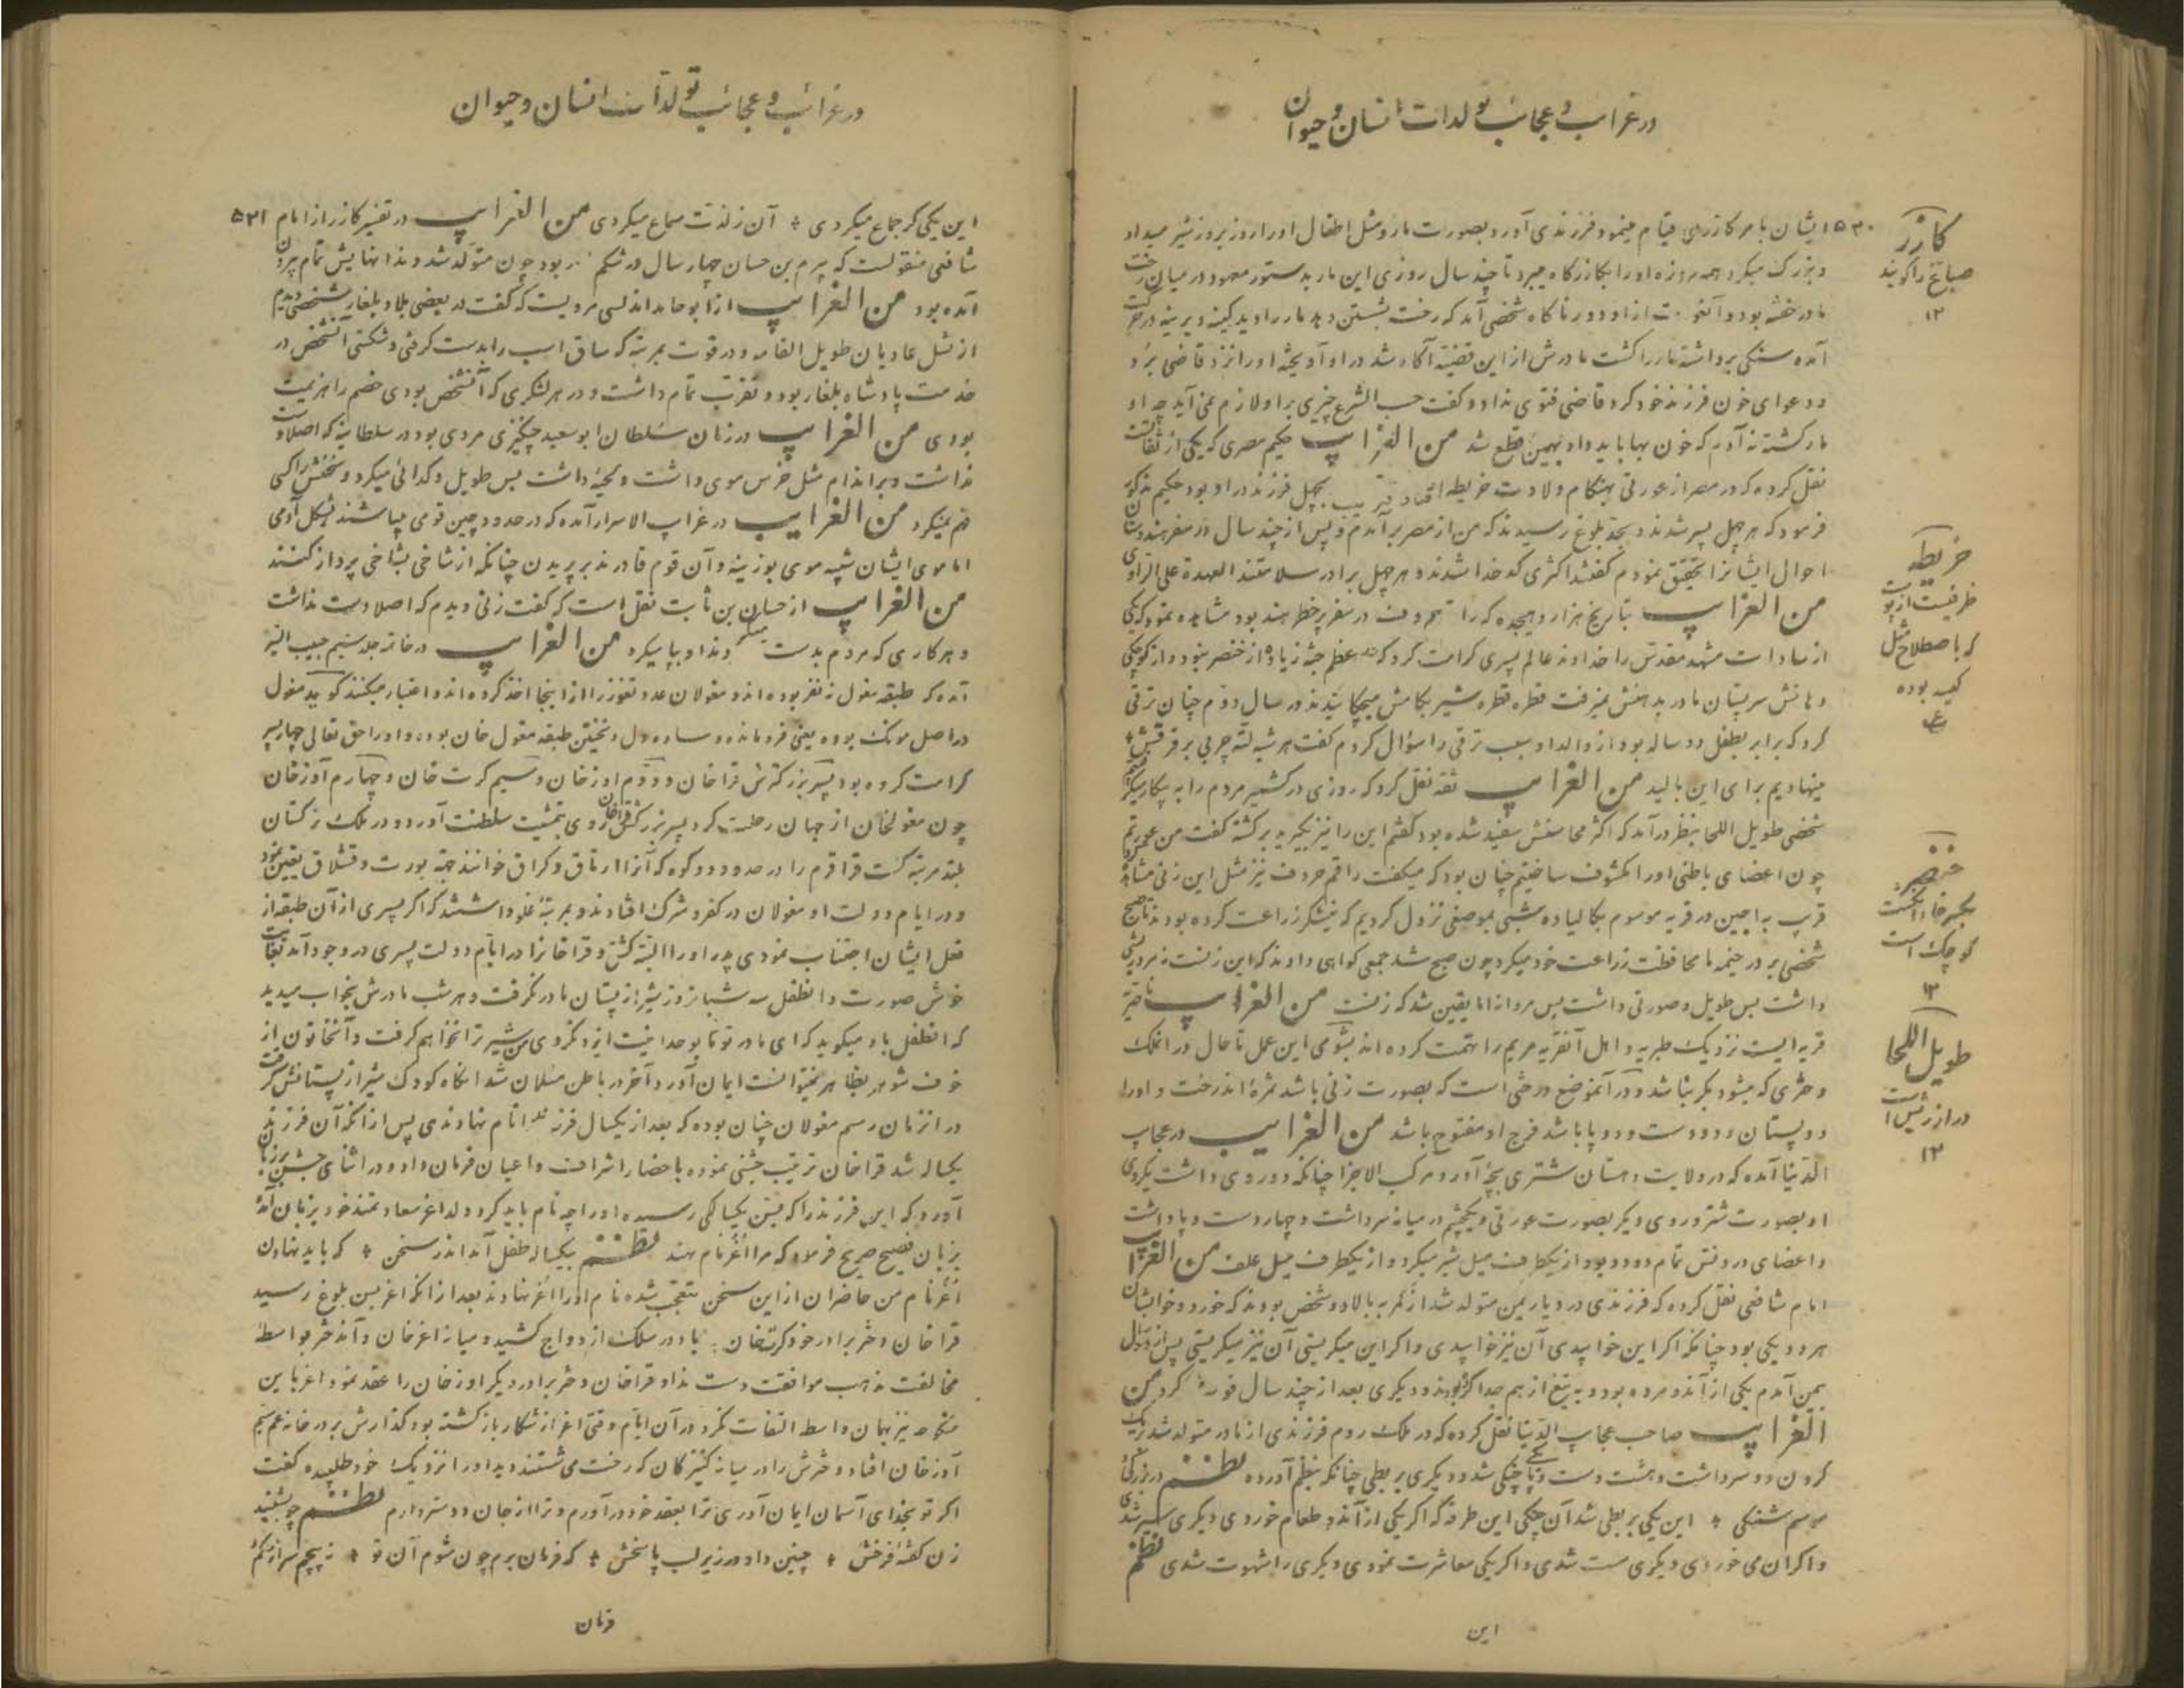 در غرائب و عجائب تولدات انسان و حیوان
۵۳۰
ایشان بامر کازری قیام مینمود فرزندی آورد بصورت مار و مثل اطفال او را روز بروز شیر میداد
و بزرگ میکرد همه روزه او را بکازرگاه میبرد تا چند سال روزی این مار بدستور معهود در میان رخت
مادر خفته بود و آنعورت از او دور ناگاه شخصی آمد که رخت بشستن دهد مار را دید کینه دیرینه در حرکت
آمده سنگی برداشته مار را کشت مادرش از این قضیه آگاه شد در او آویخته او را نزد قاضی برد
و دعوای خون فرزند خود کرد قاضی فتوی نداد و گفت حسب الشرع چیزی بر او لازم نمی آید چه او
مار کشته نه آدم که خون بها باید داد بهمین قطع شد من الغرایب حکیم مصری که یکی از ثقات
نقل کرده که در مصر از عورتی بهنگام ولادت خریطه افتاد قریب بچهل فرزند در او بود حکیم مذکور
فرمود که هر چهل پسر شدند و بحد بلوغ رسیدند که من از مصر برآمدم و پس از چند سال در سفر هندوستان
احوال ایشانرا تحقیق نمودم گفتند اکثری کدخدا شدند و هر چهل برادر سلامتند العهدة علی الراوی
من الغرایب بتاریخ هزار و هیجده که راقم حروف در سفر پر خطر هند بود مشاهده نمود که یکی
از سادات مشهد مقدس را خداوند عالم پسری کرامت کرد که عظم جثه زیاده از خنصر نبود و از کوچکی
دهانش سر پستان مادر بدهنش نمیرفت قطره قطره شیر بکامش میچکانیدند در سال دوم چنان ترقی
کرد که برابر بطفل دو ساله بود از والد او سبب ترقی را سؤال کردم گفت هر شب لته چربی بر فرقش
مینهادیم برای این بالید من الغرایب ثقه نقل کرد که روزی در کشمیر مردم را به بیکار میگرفتند
شخصی طویل اللحا بنظر درآمد که اکثر محاسنش سفید شده بود گفتم این را نیز بگیرید برگشته گفت من عورتم
چون اعضای باطنی او را مکشوف ساختیم چنان بود که میگفت راقم حروف نیز مثل این زنی مشاهده
قرب به اجین در قریه موسوم بکالیاده شبی بموضعی نزول کردیم که نیشکر زراعت کرده بودند تا صبح
شخصی بر در خیمه ما محافظت زراعت خود میکرد چون صبح شد جمعی گواهی دادند که این زنست نه مرد ریشی
داشت بس طویل و صورتی داشت بس مردانه اما یقین شد که زنست من الغرایب ناصره
قریه ایست نزدیک طبریه و اهل آنقریه مریم را تهمت کرده اند بشومی این عمل تا حال در آنملک
دختری که میشود بکر نباشد و در آنموضع درختی است که بصورت زنی باشد ثمره اندرخت و او را
دو پستان و دو دست و دو پا باشد فرج او مفتوح باشد من الغرایب در عجایب
الدنیا آمده که در ولایت دهستان شتری بچه آورد مرکب الاجزا چنانکه دو روی داشت یکروی
او بصورت شتر و روی دیگر بصورت عورتی و یکچشم در میانه سر داشت و چهار دست و پا داشت
و اعضای درونش تمام دو دو بود از یکطرف میل شیر میکرد و از یکطرف میل علف من الغرایب
امام شافعی نقل کرده که فرزندی در دیار یمن متولد شد از کمر به بالا دو شخص بودند که خورد و خواب ایشان
هر دو یکی بود چنانکه اگر این خوابیدی آن نیز خوابیدی و اگر این میگریستی آن نیز میگریستی پس از دو سال
بیمن آمدم یکی از آندو مرده بود و به تیغ از هم جدا کرده بودند و دیگری بعد از چند سال فوت کرد من
الغرایب صاحب عجایب الدنیا نقل کرده که در ملک روم فرزندی از مادر متولد شد بریک
گردن دو سر داشت و هشت دست و پا یکی چنگی شد و دیگری بربطی چنانکه بنظم آورده نظم در بزرگی
موسم شنگی * این یکی بربطی شد آن چنگی این طرفه که اگر یکی از آندو طعام خوردی دیگری سیر شدی
و اگر آن می خوردی دیگری مست شدی و اگر یکی معاشرت نمودی دیگری را شهوت شدی نظم
این
کازر
صباغ را گویند
۱۲
خریطه
ظرفیست از پوست
که باصطلاح مثل
کیسه بوده
خنصر
بکسر خاء انگشت
کوچک است
۱۲
طویل اللحا
دراز ریش است
۱۲
در غرائب و عجائب تولدات انسان و حیوان
۵۳۱
این یکی گر جماع میکردی * آن ز لذت سماع میکردی من الغرایب در تفسیر کازر از امام
شافعی منقولست که هرم بن حسان چهار سال در شکم مادر بود چون متولد شد دندانهایش تمام بیرون
آمده بود من الغرایب از ابو حامد اندلسی مرویست که گفت در بعضی بلاد بلغار شخصی دیدم
از نسل عادیان طویل القامه و در قوت بمرتبه که ساق اسب را بدست گرفتی و شکستی آنشخص در
خدمت پادشاه بلغار بود و تقرب تمام داشت و در هر لشکری که آنشخص بودی خصم را هزیمت
بودی من الغرایب در زمان سلطان ابو سعید چنگیزی مردی بود در سلطانیه که اصلا دست
نداشت و بر اندام مثل خرس موی داشت و لحیه داشت بس طویل و گدائی میکرد و سخنش را کسی
فهم نمیکرد من الغرایب در غرایب الاسرار آمده که در حدود چین قومی میباشند بشکل آدمی
اما موی ایشان شبیه موی بوزینه و آن قوم قادرند بر پریدن چنانکه از شاخی بشاخی پرواز کنند
من الغرایب از حسان بن ثابت نقل است که گفت زنی دیدم که اصلا دست نداشت
و هر کاری که مردم بدست میکنند او بپا میکرد من الغرایب در خاتمه جلد سیم حبیب السیر
آمده که طبقه مغول نه نفر بوده اند و مغولان عدد تقوز را از اینجا اخذ کرده اند و اعتبار میکنند گویند مغول
در اصل مونک بوده یعنی فرومانده و ساده دل و نخستین طبقه مغول خان بوده و او را حق تعالی چهار پسر
کرامت کرده بود پسر بزرگترش قراخان و دوم اوزخان و سیم کرت خان و چهارم آوزخان
چون مغولخان از جهان رحلت کرد پسر بزرگش قراخان روی بتمشیت سلطنت آورد و در ملک ترکستان
بلند مرتبه گشت قراقرم را در حدود دو کوه که آنرا ارتاق و کراق خوانند جهة یورت و قشلاق تعیین نمود
و در ایام دولت او مغولان در کفر و شرک افتادند و بمرتبه غلو داشتند که اگر پسری از آن طبقه از
فعل ایشان اجتناب نمودی پدر او را البته کشتی و قراخانرا در ایام دولت پسری در وجود آمد بغایت
خوش صورت و آنطفل سه شبانروز شیر از پستان مادر نگرفت و هر شب مادرش بخواب میدید
که آنطفل با او میگوید که ای مادر تو تا بوحدانیت ایزد نگروی من شیر ترا نخواهم گرفت و آنخاتون از
خوف شوهر بظاهر نمیتوانست ایمان آورد آخر در باطن مسلمان شد آنگاه کودک شیر از پستانش گرفت
در انزمان رسم مغولان چنان بوده که بعد از یکسال فرزند را نام نهادندی پس از آنکه آن فرزند
یکساله شد قراخان ترتیب جشنی نموده باحضار اشراف و اعیان فرمان داد و در اثنای جشن بر زبان
آورد که این فرزند را که بسن یکسالگی رسیده او را چه نام باید کرد ولد اغر سعادتمند خود بزبان آمده
بزبان فصیح صریح فرمود که مرا اغر نام نهند نظم بیکساله طفل آمد اندر سخن * که باید نهادن
اغر نام من حاضران از این سخن متعجب شده نام او را اغر نهادند بعد از آنکه اغر بسن بلوغ رسید
قراخان دختر برادر خود کرتخان با او در سلک ازدواج کشید و میانه اغرخان و آندختر بواسطه
مخالفت مذهب موافقت دست نداد قراخان دختر برادر دیگر اوزخان را عقد نمود اغر باین
منکوحه نیز بهمان واسطه التفات نکرد در آن ایام وقتی اغر از شکار بازگشته بود گذارش بر در خانه عم سیم
آوزخان افتاد دخترش را در میانه کنیزکان که رخت می شستند دید او را نزدیک خود طلبیده گفت
اگر تو بخدای آسمان ایمان آوری ترا بعقد خود درآورم و ترا از جان دوستر دارم نظم چو بشنید
زن گفته فرخش * چنین داد در زیر لب پاسخش * که فرمان برم چون شوم آن تو * نه پیچم سر از حکم
فرمان